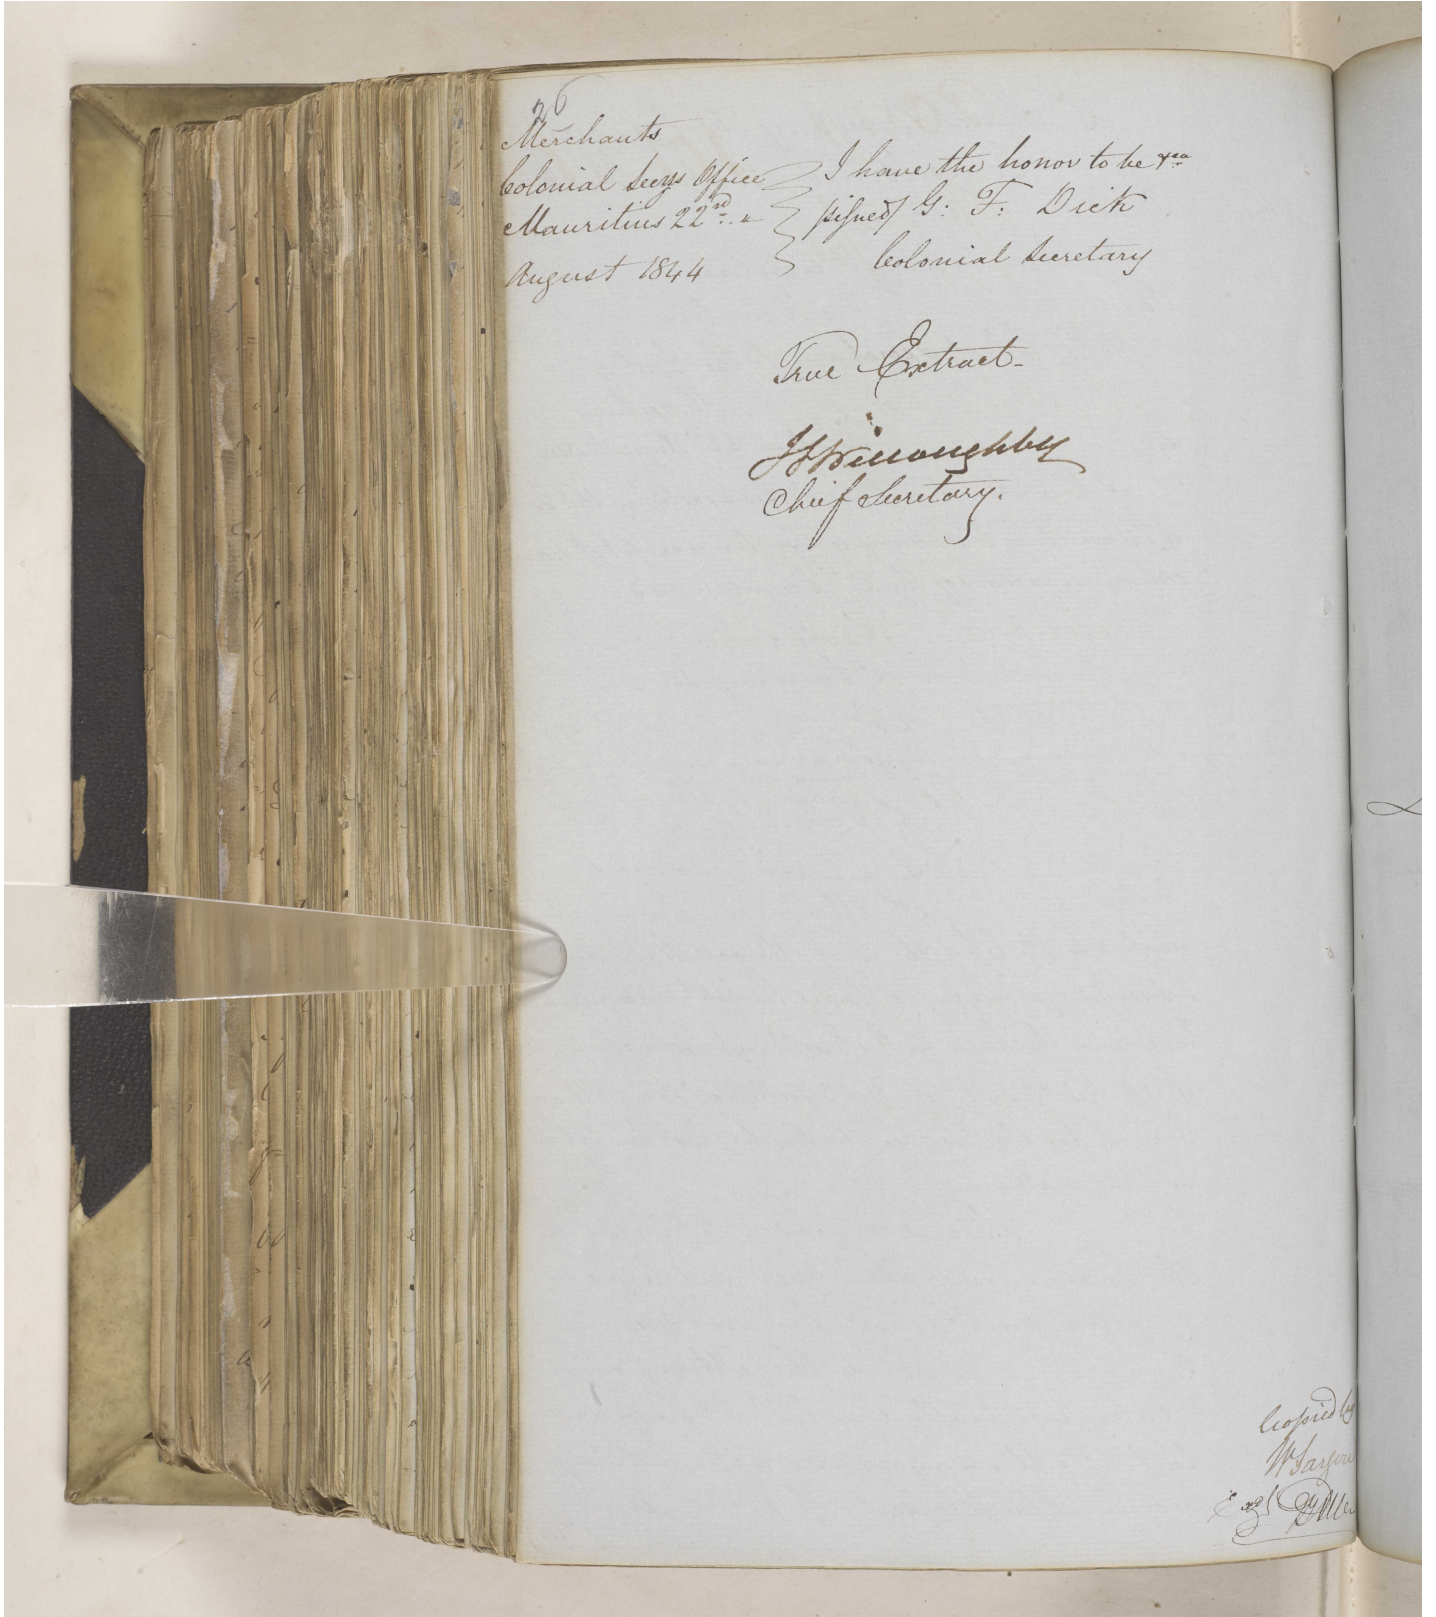 26
Merchants
Colonial Secys Office
Mauritius 22nd.
August 1844
I have the honor to be &ca
signed/ G: F: Dick
Colonial Secretary
True Extract-
J P Willoughby
Chief Secretary.
Copied by
Exd